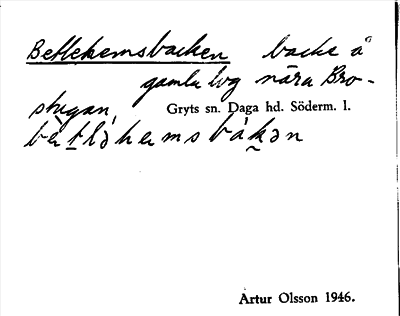 Betlehemsbacken backe å
gamla lvg nära Bro-
stugan, Gryts sn. Daga hd. Söderm. l.
Artur Olsson 1946.